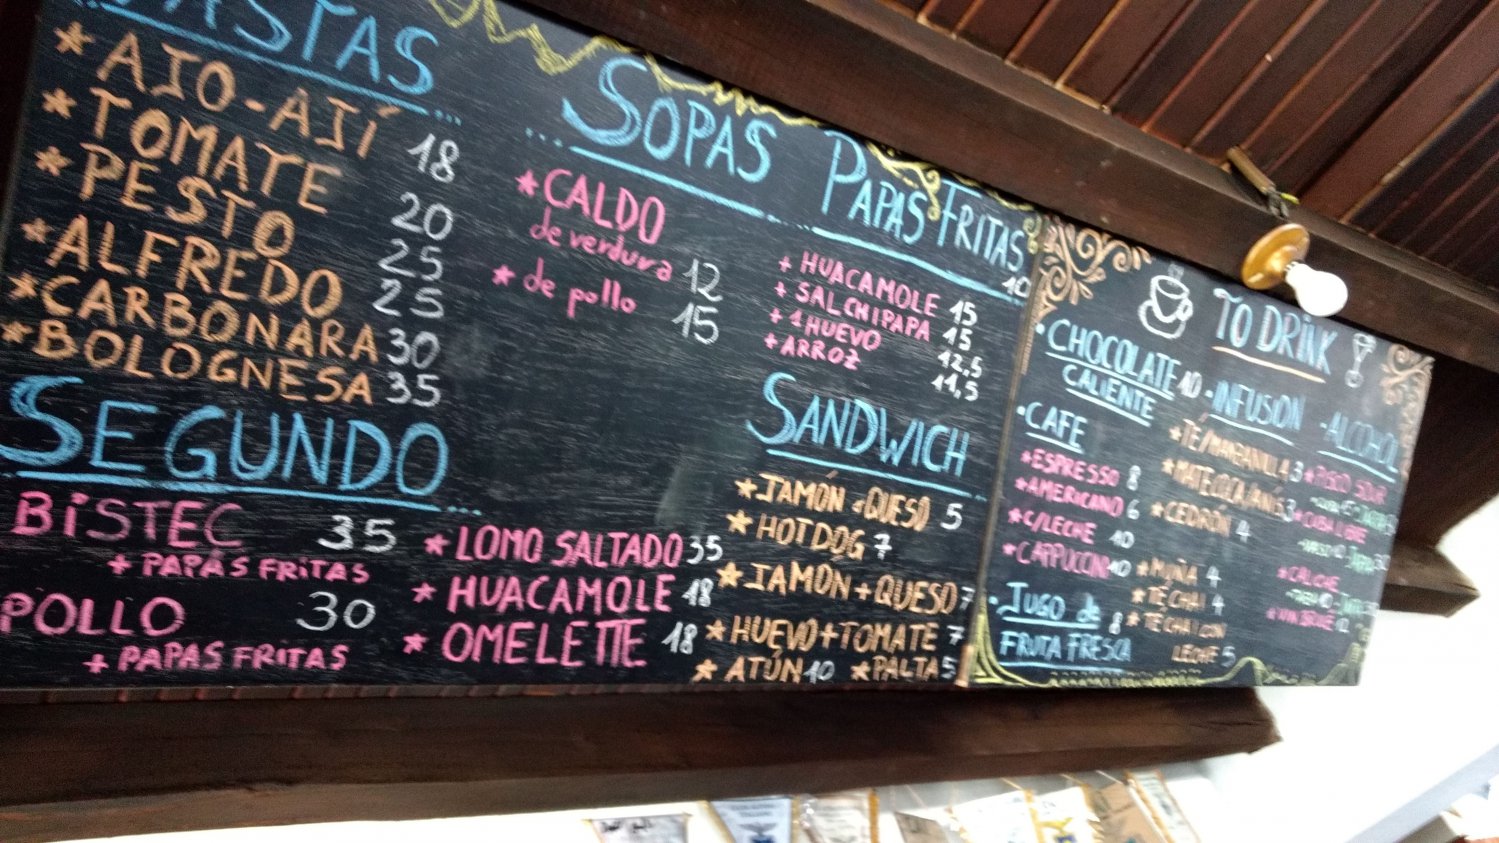 PASTAS
* AJO-AJÍ 18
* TOMATE 20
* PESTO 25
* ALFREDO 25
* CARBONARA 30
* BOLOGNESA 35
SEGUNDO
BiSTEC 35
+ PAPAS FRiTAS
POLLO 30
+ PAPAS FRITAS
* LOMO SALTADO 35
* HUACAMOLE 18
* OMELETTE 18
SOPAS
* CALDO
de verdura 12
* de pollo 15
PAPAS FRITAS
10
+ HUACAMOLE 15
+ SALCHIPAPA 15
+ 1 HUEVO 12,5
+ ARROZ 11,5
SANDWICH
* JAMÓN o QUESO 5
* HOTDOG 7
* JAMON + QUESO 7
* HUEVO + TOMATE 7
* ATÚN 10 * PALTA 5
TO DRiNK
· CHOCOLATE 10
CALIENTE
· CAFE
* ESPRESSO 8
* AMERICANO 6
* C/LECHE 10
* CAPPUCCINO 10
· JUGO de 8
FRUTA FRESCA
- INFUSION
* TÉ/MANZANILLA 3
* MATE COCA/ANÍS 3
* CEDRÓN 4
* MUÑA 4
* TÉ CHAI 4
* TÉ CHAI CON
LECHE 5
- ALCOHOL
* PISCO SOUR
* CUBA LIBRE